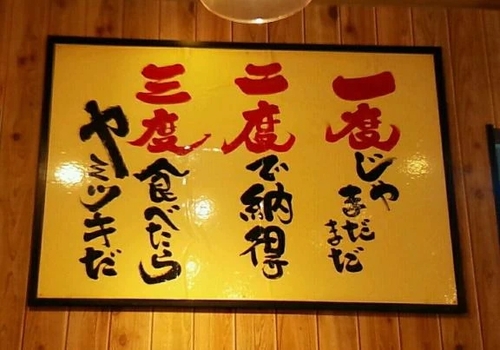 一度じゃまだまだ
二度で納得
三度食べたら
ヤミツキだ